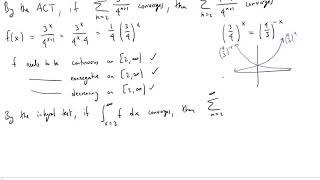 By the ACT, if ∑ n=2 3ⁿ/4ⁿ⁺¹ converges, then ∑ converges
f(x) = 3ˣ/4ˣ⁺¹ = 3ˣ/(4ˣ·4) = 1/4 (3/4)ˣ
(3/4)ˣ = (4/3)⁻ˣ
f needs to be continuous on [2,∞) ✓
nonnegative on [2,∞) ✓
decreasing on [2,∞) ✓
By the integral test, if ∫ x=2 ∞ f dx converges, then ∑ n=2 ∞